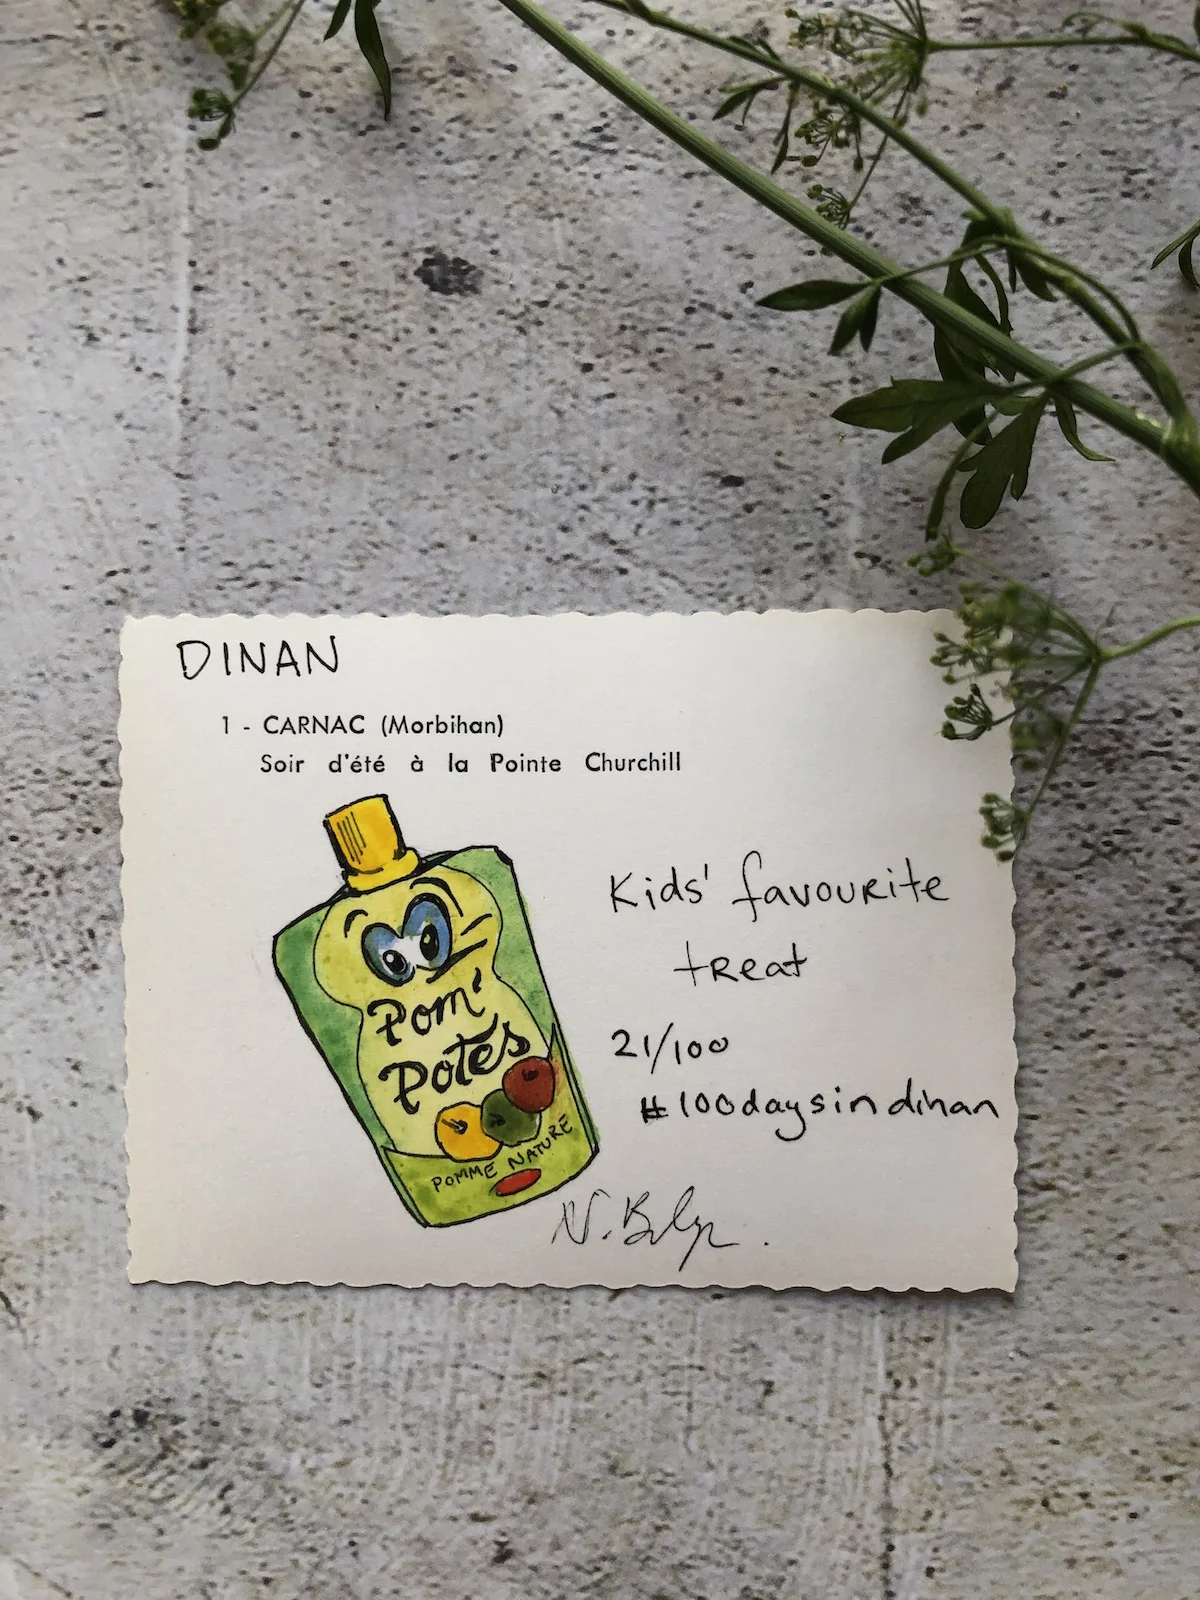 DINAN
1 - CARNAC (Morbihan)
Soir d'été à la Pointe Churchill
Kids' favourite
treat
Pom'
Potes
21/100
#100daysindinan
POMME NATURE